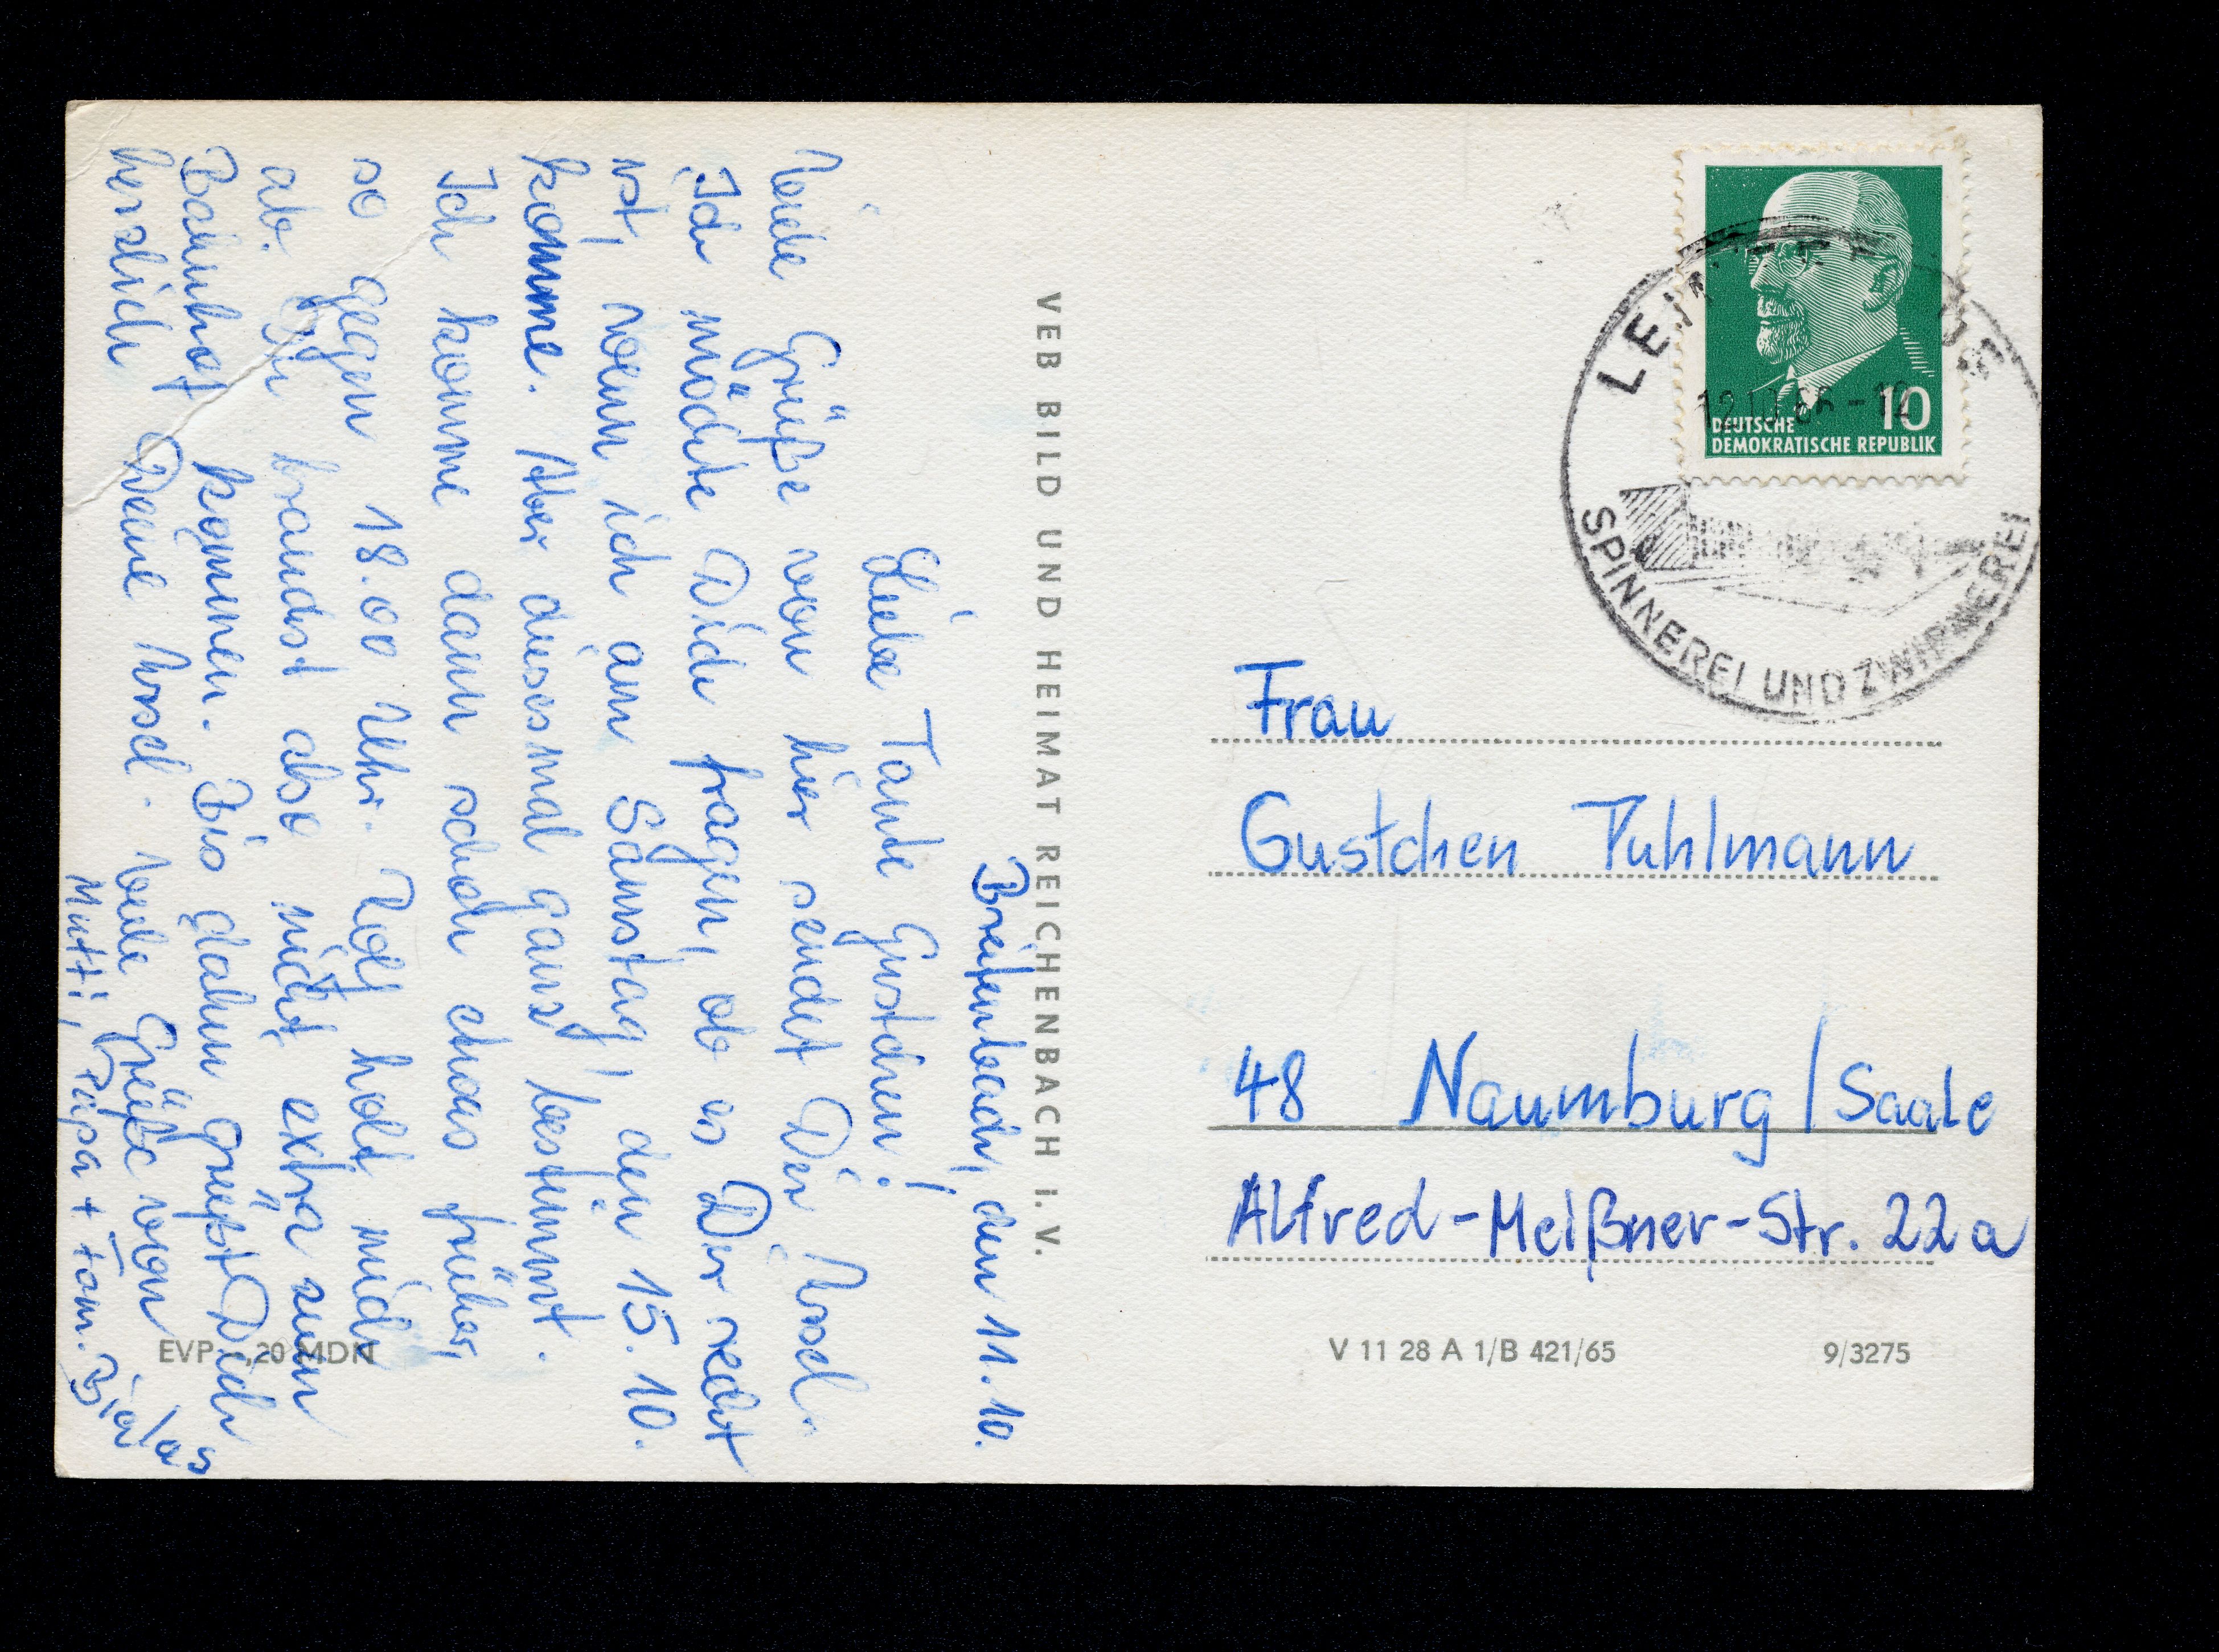 Breitenbach, den 11.10.
Liebe Tante Gustchen!
Viele Grüße von hier sendet Dir Ursel.
Ich möchte Dich fragen, ob es Dir recht
ist, wenn ich am Samstag, den 15.10.
komme. Aber diesesmal ganz bestimmt.
Ich komme dann schon etwas früher,
so gegen 18.00 Uhr. Rolf holt mich
ab. Du brauchst also nicht extra zum
Bahnhof kommen. Bis dahin grüßt Dich
herzlich Deine Ursel. Viele Grüße von
Mutti, Papa + Fam.
VEB BILD UND HEIMAT REICHENBACH I. V.
EVP -,20 MDN
DEUTSCHE
DEMOKRATISCHE REPUBLIK
10
SPINNEREI UND ZWIRNEREI
Frau
Gustchen Puhlmann
48 Naumburg/Saale
Alfred-Meißner-Str. 22a
V 11 28 A 1/B 421/65
9/3275